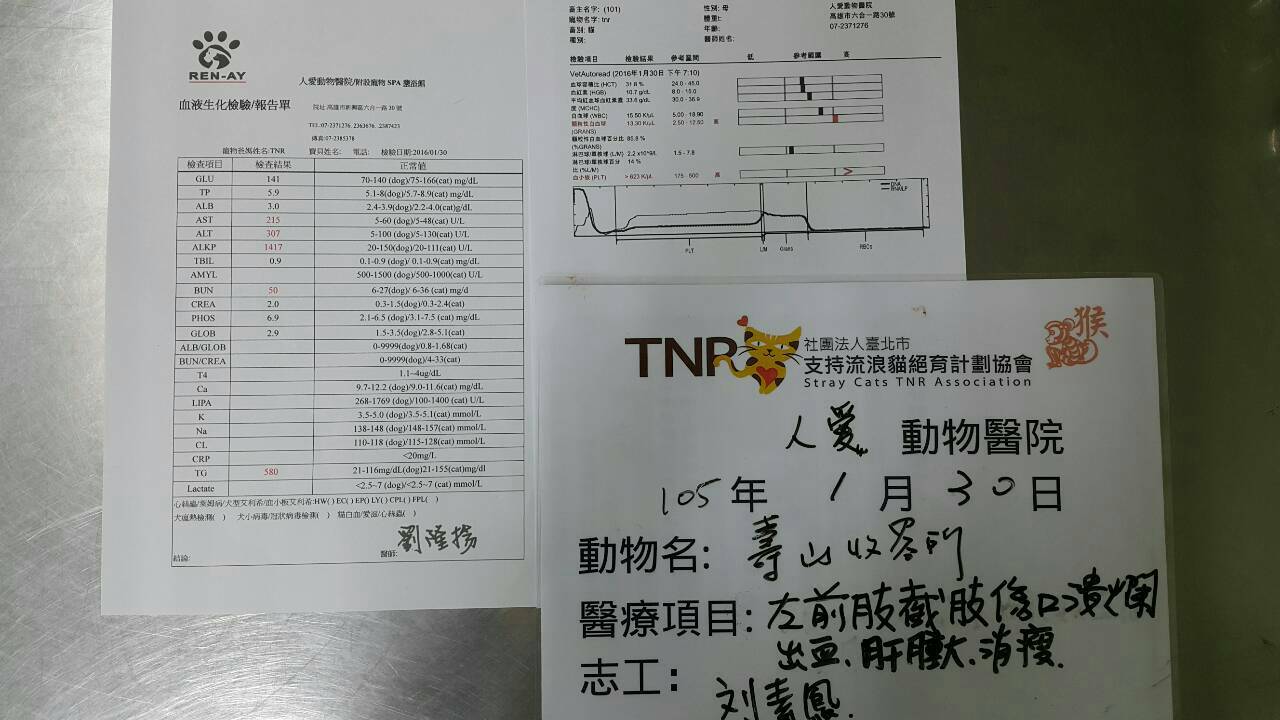 REN-AY
人愛動物醫院/附設寵物 SPA 鹽浴館
血液生化檢驗/報告單
院址:高雄市新興區六合一路 30 號
TEL:07-2371276. 2363676. 2387423
傳真:07-2385378
寵物爸媽姓名:TNR 寶貝姓名: 電話: 檢驗日期:2016/01/30
檢查項目 檢查結果 正常值
GLU 141 70-140 (dog)/75-166(cat) mg/dL
TP 5.9 5.1-8(dog)/5.7-8.9(cat) mg/dL
ALB 3.0 2.4-3.9(dog)/2.2-4.0(cat)g/dL
AST 215 5-60 (dog)/5-48(cat) U/L
ALT 307 5-100 (dog)/5-130(cat) U/L
ALKP 1417 20-150(dog)/20-111(cat) U/L
TBIL 0.9 0.1-0.9 (dog)/ 0.1-0.9(cat) mg/dL
AMYL 500-1500 (dog)/500-1000(cat) U/L
BUN 50 6-27(dog)/ 6-36 (cat) mg/d
CREA 2.0 0.3-1.5(dog)/0.3-2.4(cat)
PHOS 6.9 2.1-6.5 (dog)/3.1-7.5 (cat) mg/dL
GLOB 2.9 1.5-3.5(dog)/2.8-5.1(cat)
ALB/GLOB 0-9999(dog)/0.8-1.68(cat)
BUN/CREA 0-9999/4-33(cat)
T4 1.1~4ug/dL
Ca 9.7-12.2 (dog)/9.0-11.6(cat) mg/dL
LIPA 268-1769 (dog)/100-1400 (cat) U/L
K 3.5-5.0 (dog)/3.5-5.1(cat) mmol/L
Na 138-148 (dog)/148-157(cat) mmol/L
CL 110-118 (dog)/115-128(cat) mmol/L
CRP <20mg/L
TG 580 21-116mg/dL(dog)21-155(cat)mg/dl
Lactate <2.5~7 (dog)/<2.5~7 (cat) mmol/L
心絲蟲/萊姆病/犬型艾利希/血小板艾利希:HW( ) EC( ) EP( ) LY( ) CPL( ) FPL( )
犬瘟熱檢測( ) 犬小病毒/冠狀病毒檢測( ) 貓白血/愛滋/心絲蟲( )
結論: 醫師: 劉隆揚
畜主名字: (101) 性別: 母 人愛動物醫院
寵物名字: tnr 體重: 高雄市六合一路30號
畜別: 貓 年齡: 07-2371276
種別: 醫師姓名:
檢驗項目 檢驗結果 參考量閾 低 參考範圍 高
VetAutoread (2016年1月30日 下午 7:10)
血球容積比 (HCT) 31.8 % 24.0 - 45.0
血紅素 (HGB) 10.7 g/dL 8.0 - 15.0
平均紅血球血紅素濃 33.6 g/dL 30.0 - 36.9
度 (MCHC)
白血球 (WBC) 15.50 K/µL 5.00 - 18.90
顆粒性白血球 13.30 K/µL 2.50 - 12.50 高
(GRANS)
顆粒性白血球百分比 85.8 %
(%GRANS)
淋巴球/單核球 (L/M) 2.2 x10^9/L 1.5 - 7.8
淋巴球/單核球百分 14 %
比 (%L/M)
血小板 (PLT) > 623 K/µL 175 - 500 高
DNA
RNA/LP
PLT L/M Grans RBCs
TNR 社團法人臺北市
支持流浪貓絕育計劃協會
Stray Cats TNR Association
猴
人愛 動物醫院
105 年 1 月 30 日
動物名: 壽山收容所
醫療項目: 左前肢截肢傷口潰爛
出血、肝腫大、消瘦.
志工: 刘素鳳.